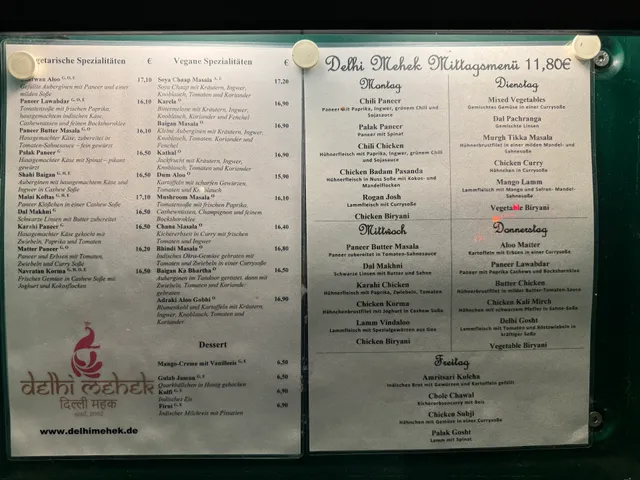 Vegetarische Spezialitäten €
Aloo G, O, E 17,10
Gefüllte Auberginen mit Paneer und einer
milden Soße
Paneer Lawabdar G, O, E 16,90
Tomatensoße mit frischen Paprika,
hausgemachtem indischen Käse,
Cashewnüssen und feinen Bockshornklee
Paneer Butter Masala G, O 16,90
Hausgemachter Käse, zubereitet in
Tomaten-Sahnesauce – fein gewürzt
Palak Paneer G 16,50
Hausgemachter Käse mit Spinat – pikant
gewürzt
Shahi Baigan G, H, E 16,50
Auberginen mit hausgemachten Käse und
Ingwer in Cashew Soße
Malai Koftas 17,10
Paneer Klößchen in einer Cashew Soße
Dal Makhni G 16,50
Schwarze Linsen mit Butter zubereitet
Karahi Paneer G 16,50
Hausgemachter Käse gekocht mit
Zwiebeln, Paprika und Tomaten
Matter Paneer 16,20
Paneer und Erbsen mit Tomaten,
Zwiebeln und Curry Soße
Navratan Korma 16,50
Frisches Gemüse in Cashew Soße mit
Joghurt und Kokosflocken
delhi mehek
दिल्ली महक
www.delhimehek.de
Vegane Spezialitäten €
Soya Chaap Masala 17,20
Soya Chaap mit Kräutern, Ingwer,
Knoblauch, Tomaten und Koriander
Karela 16,90
Bittermelone mit Kräutern, Ingwer,
Knoblauch, Tomaten, Koriander und Fenchel
Baigan Masala 16,90
Kleine Auberginen mit Kräutern, Ingwer,
Knoblauch, Tomaten, Koriander und
Fenchel
Kathal 16,90
Jackfrucht mit Kräutern, Ingwer,
Knoblauch, Tomaten und Koriander
Dum Aloo 15,90
Kartoffeln mit scharfen Gewürzen,
Tomaten und
Mushroom Masala 16,10
Tomatensoße mit frischen Paprika,
Cashewnüssen, Champignons und feinem
Bockshornklee
Chana Masala 16,40
Kichererbsen in Curry mit frischen
Tomaten und Ingwer
Bhindi Masala 16,80
Indisches Okra-Gemüse gebraten mit
Tomaten und Zwiebeln in einer Currysoße
Baigan Ka Bhurtha 16,50
Auberginen im Tandoor geröstet, dann mit
Zwiebeln, Tomaten und Koriander
gebraten
Adraki Aloo Gobhi 16,90
Blumenkohl und Kartoffeln mit Kräutern,
Ingwer, Knoblauch, Tomaten und
Koriander
Dessert
Mango-Creme mit Vanilleeis 6,50
Gulab Jamun 6,50
Quarkbällchen in Honig gebacken
Kulfi 6,90
Indisches Eis
Firni 6,90
Indischer Milchreis mit Pistazien
Delhi Mehek Mittagsmenü 11,80€
Montag
Chili Paneer
Paneer mit Paprika, Ingwer, grünem Chili und
Sojasauce
Palak Paneer
Paneer mit Spinat
Chili Chicken
Hühnerfleisch mit Paprika, Ingwer, grünem Chili
und Sojasauce
Chicken Badam Pasanda
Hühnerfleisch in Nuss Soße mit Kokos- und
Mandelflocken
Rogan Josh
Lammfleisch mit Currysoße
Chicken Biryani
Dienstag
Mixed Vegetables
Gemischtes Gemüse in einer Currysoße
Dal Pachranga
Gemischte Linsen
Murgh Tikka Masala
Hühnerbrustfilet in einer milden Mandel- und
Sahnesoße
Chicken Curry
Hähnchen in Currysoße
Mango Lamm
Lammfleisch mit Mango und Safran- Mandel-
Sahnesoße
Vegetable Biryani
Mittwoch
Paneer Butter Masala
Paneer zubereitet in Tomaten-Sahnesauce
Dal Makhni
Schwarze Linsen mit Butter und Sahne
Karahi Chicken
Hühnerfleisch mit Paprika, Zwiebeln, Tomaten
Chicken Korma
Hähnchenbrustfilet mit Joghurt in Cashew Soße
Lamm Vindaloo
Lammfleisch mit Spezialgewürzen aus Goa
Chicken Biryani
Donnerstag
Aloo Matter
Kartoffeln mit Erbsen in einer Currysoße
Paneer Lawabdar
Paneer mit Paprika Cashews und Bockshornklee
Butter Chicken
Hühnerbrustfilet in milder Butter-Tomaten-Sauce
Chicken Kali Mirch
Hähnchen mit schwarzem Pfeffer in Sahne-Soße
Delhi Gosht
Lammfleisch mit Tomaten und Röstzwiebeln in
Soße
Vegetable Biryani
Freitag
Amritsari Kulcha
Indisches Brot mit Gewürzen und Kartoffeln gefüllt
Chole Chawal
Kichererbsencurry mit Reis
Chicken Subji
Hähnchen mit Gemüse in einer Currysoße
Palak Gosht
Lamm mit Spinat